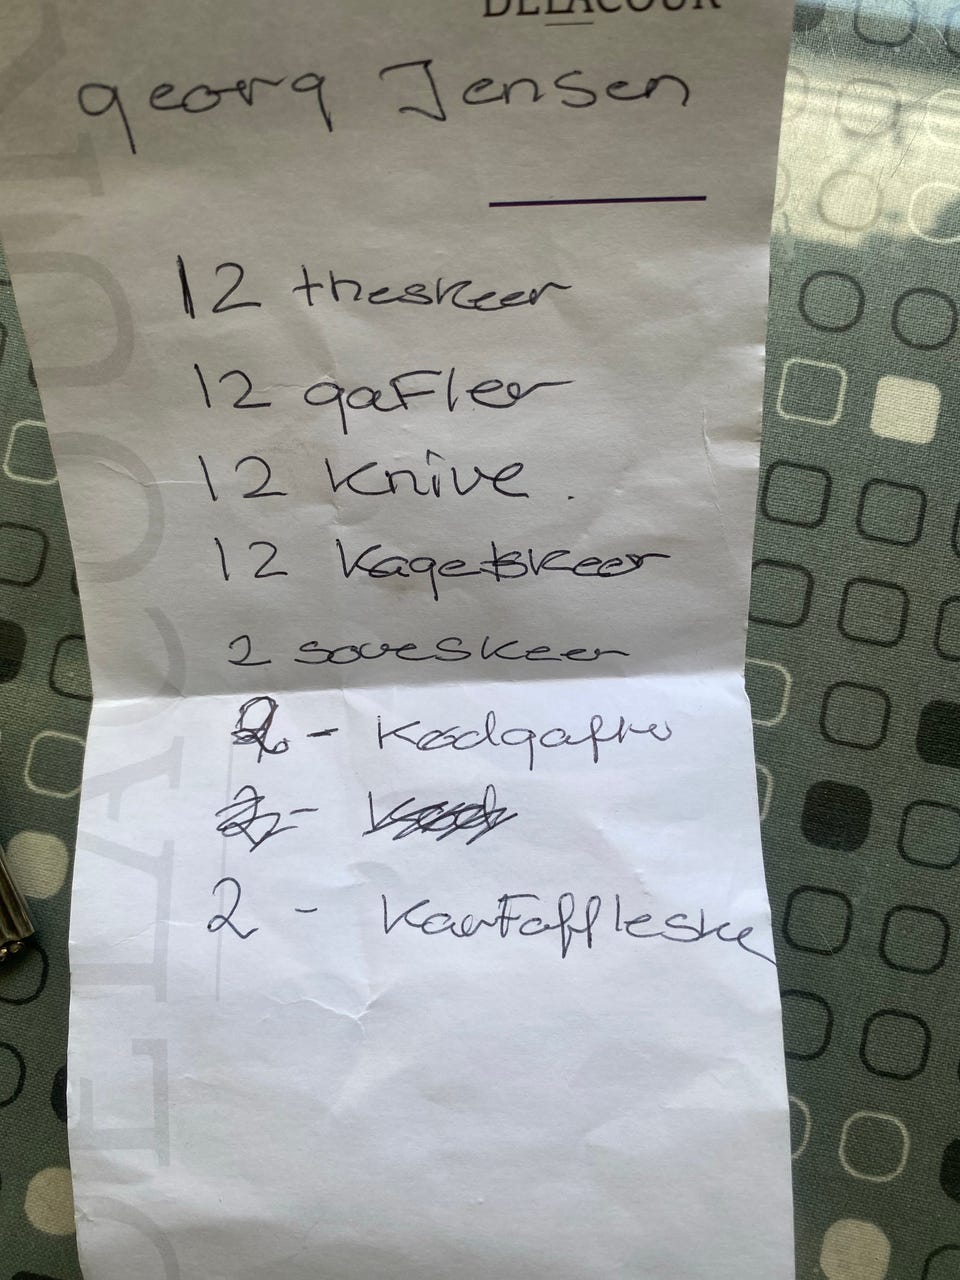 DELACOUR
georg Jensen
12 theskeer
12 gafler
12 knive.
12 kageskeer
2 soveskeer
2 - Kødgafler
2 -
2 - Kartoffleske
DELACOUR